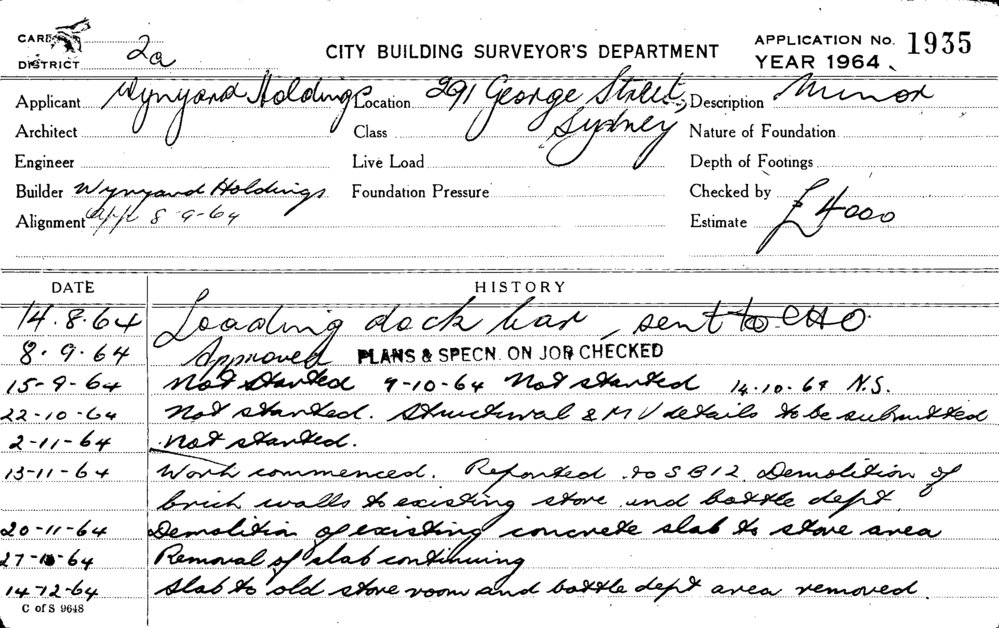 CARD
DISTRICT 2a
CITY BUILDING SURVEYOR'S DEPARTMENT
APPLICATION No. 1935
YEAR 1964
Applicant Wynyard Holdings Location 291 George Street, Description Minor
Architect Class Sydney Nature of Foundation
Engineer Live Load Depth of Footings
Builder Wynyard Holdings Foundation Pressure Checked by
Alignment App 8-9-64 Estimate £4000
DATE HISTORY
14.8.64 Loading dock bar, sent to CHO.
8.9.64 Approved PLANS & SPECN. ON JOB CHECKED
15-9-64 Not Started 9-10-64 Not started 14.10.64 N.S.
22-10-64 Not started. Structural & M V details to be submitted
2-11-64 Not started.
13-11-64 Work commenced. Reported to S B 12. Demolition of
brick walls to existing store and bottle dept
20-11-64 Demolition of existing concrete slab to store area
27-11-64 Removal of slab continuing
14-12-64 Slab to old store room and bottle dept area removed.
C of S 9648